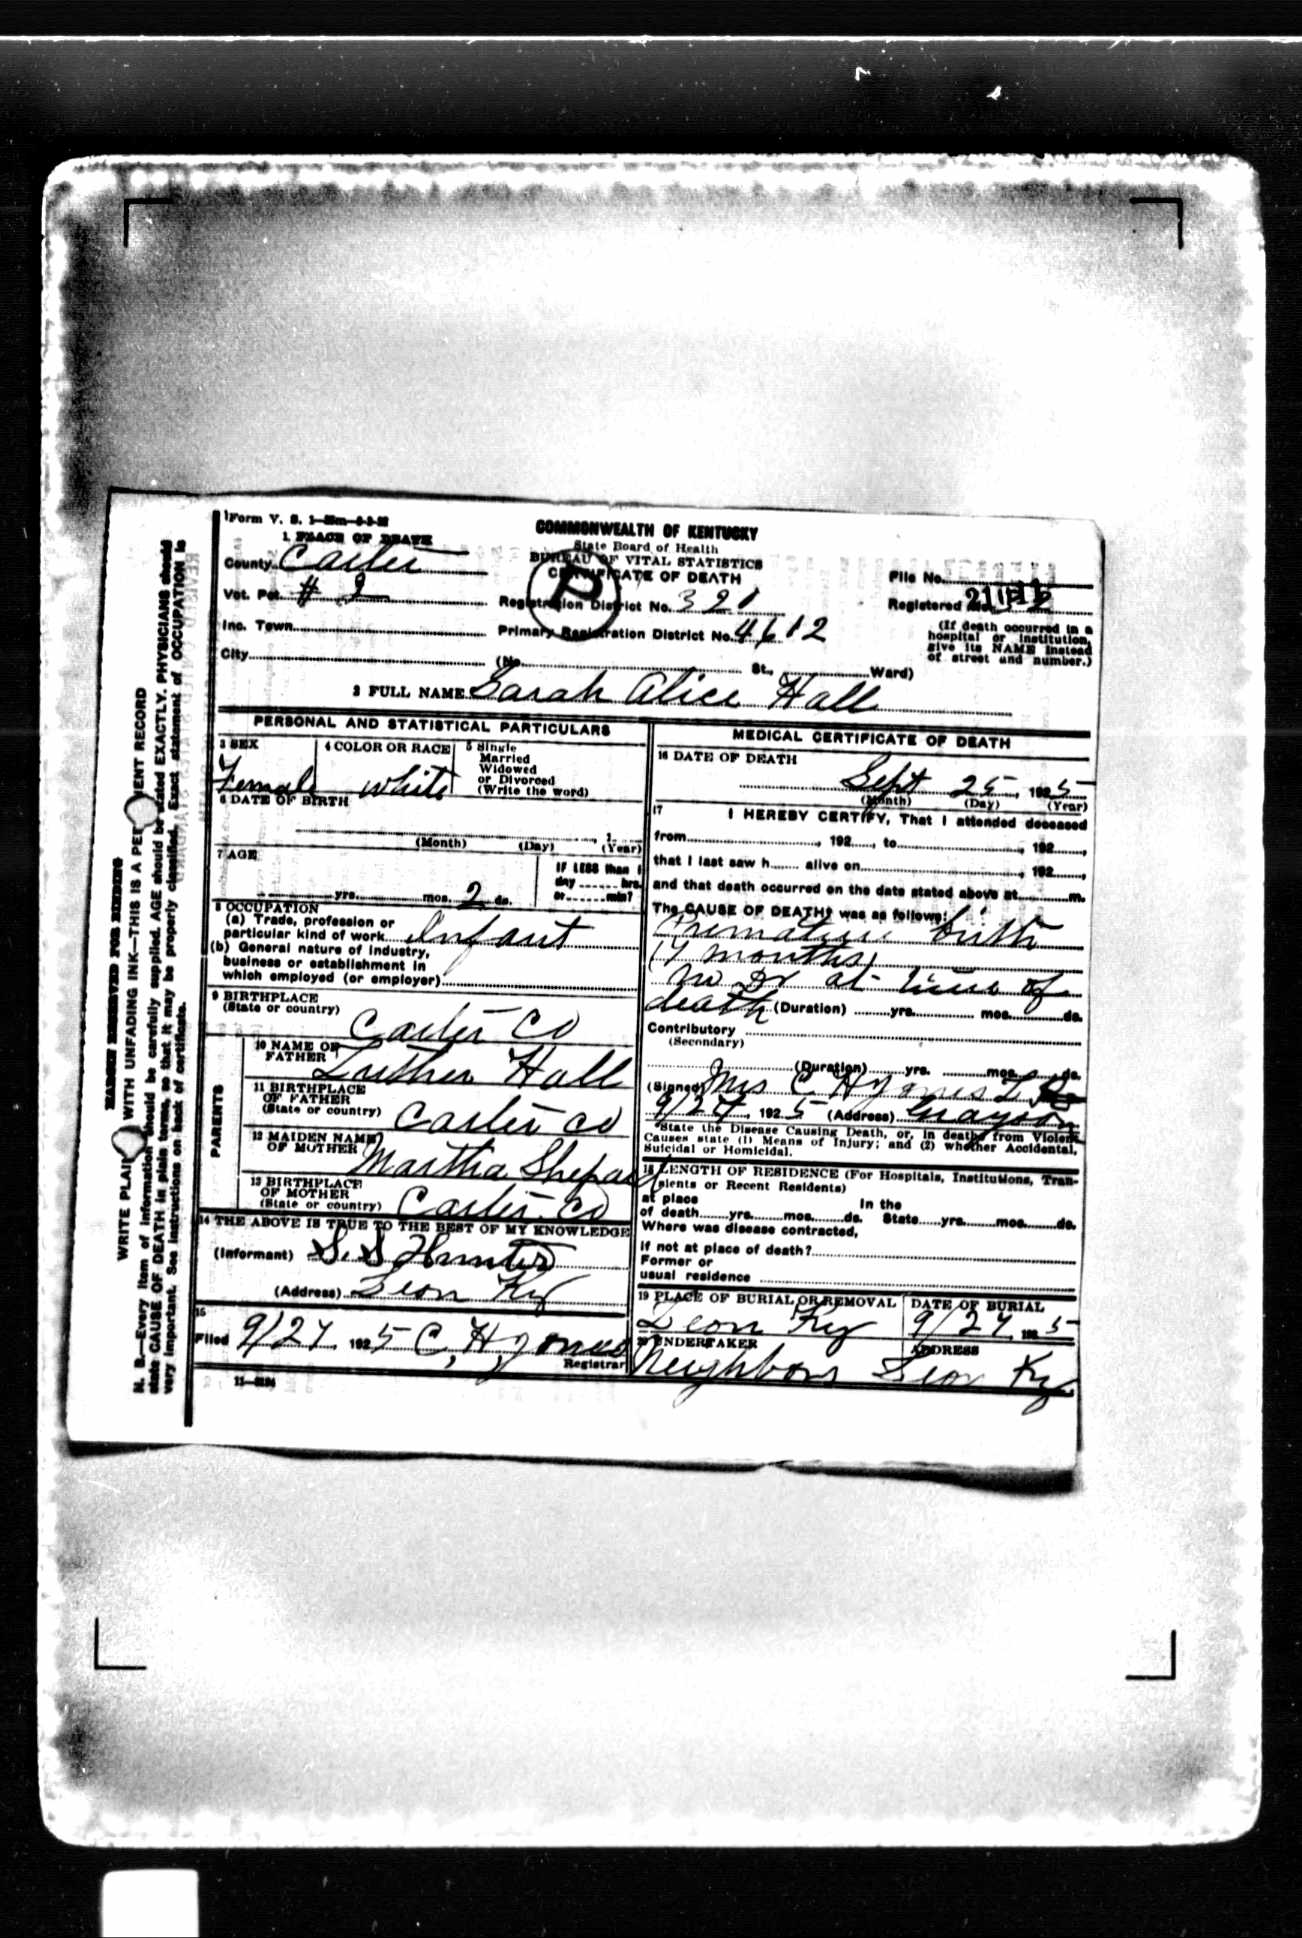 Form V. S.
COMMONWEALTH OF KENTUCKY
State Board of Health
BUREAU OF VITAL STATISTICS
CERTIFICATE OF DEATH
1. PLACE OF DEATH
County Carter
Vot. Pct. # 2
Inc. Town
City (No. St., Ward)
Registration District No. 321
Primary Registration District No. 4612
File No.
Registered No.
(If death occurred in a
hospital or institution,
give its NAME instead
of street and number.)
2 FULL NAME Sarah Alice Hall
PERSONAL AND STATISTICAL PARTICULARS
3 SEX
Female
4 COLOR OR RACE
White
5 Single
Married
Widowed
or Divorced
(Write the word)
6 DATE OF BIRTH
(Month) (Day) (Year)
7 AGE
yrs. mos. 2 ds.
If LESS than 1
day hrs.
or min?
8 OCCUPATION
(a) Trade, profession or
particular kind of work Infant
(b) General nature of industry,
business or establishment in
which employed (or employer)
9 BIRTHPLACE
(State or country)
Carter Co
PARENTS
10 NAME OF
FATHER Luther Hall
11 BIRTHPLACE
OF FATHER
(State or country) Carter Co
12 MAIDEN NAME
OF MOTHER Martha Shepard
13 BIRTHPLACE
OF MOTHER
(State or country) Carter Co
14 THE ABOVE IS TRUE TO THE BEST OF MY KNOWLEDGE
(Informant) S. S Hunter
(Address) Leon Ky
15
Filed 9/27 1925 C, H, Jones
Registrar
MEDICAL CERTIFICATE OF DEATH
16 DATE OF DEATH
Sept 25, 1925
(Month) (Day) (Year)
17 I HEREBY CERTIFY, That I attended deceased
from , 192 , to , 192 ,
that I last saw h alive on , 192 ,
and that death occurred on the date stated above at m.
The CAUSE OF DEATH* was as follows:
Premature birth
(7 months)
no Dr at time of
death (Duration) yrs. mos. ds.
Contributory
(Secondary)
(Duration) yrs. mos. ds.
(Signed) Mrs C H Jones
9/27, 1925 (Address) Grayson
*State the Disease Causing Death, or, in deaths from Violent
Causes state (1) Means of Injury; and (2) whether Accidental,
Suicidal or Homicidal.
18 LENGTH OF RESIDENCE (For Hospitals, Institutions, Transients
or Recent Residents)
at place In the
of death yrs. mos. ds. State yrs. mos. ds.
Where was disease contracted,
if not at place of death?
Former or
usual residence
19 PLACE OF BURIAL OR REMOVAL
Leon Ky
DATE OF BURIAL
9/27, 1925
20 UNDERTAKER
Neighbors
ADDRESS
Leon Ky
MARGIN RESERVED FOR BINDING
WRITE PLAINLY WITH UNFADING INK—THIS IS A PERMANENT RECORD
N. B.—Every item of information should be carefully supplied. AGE should be stated EXACTLY. PHYSICIANS should
state CAUSE OF DEATH in plain terms, so that it may be properly classified. Exact statement of OCCUPATION is
very important. See instructions on back of certificate.